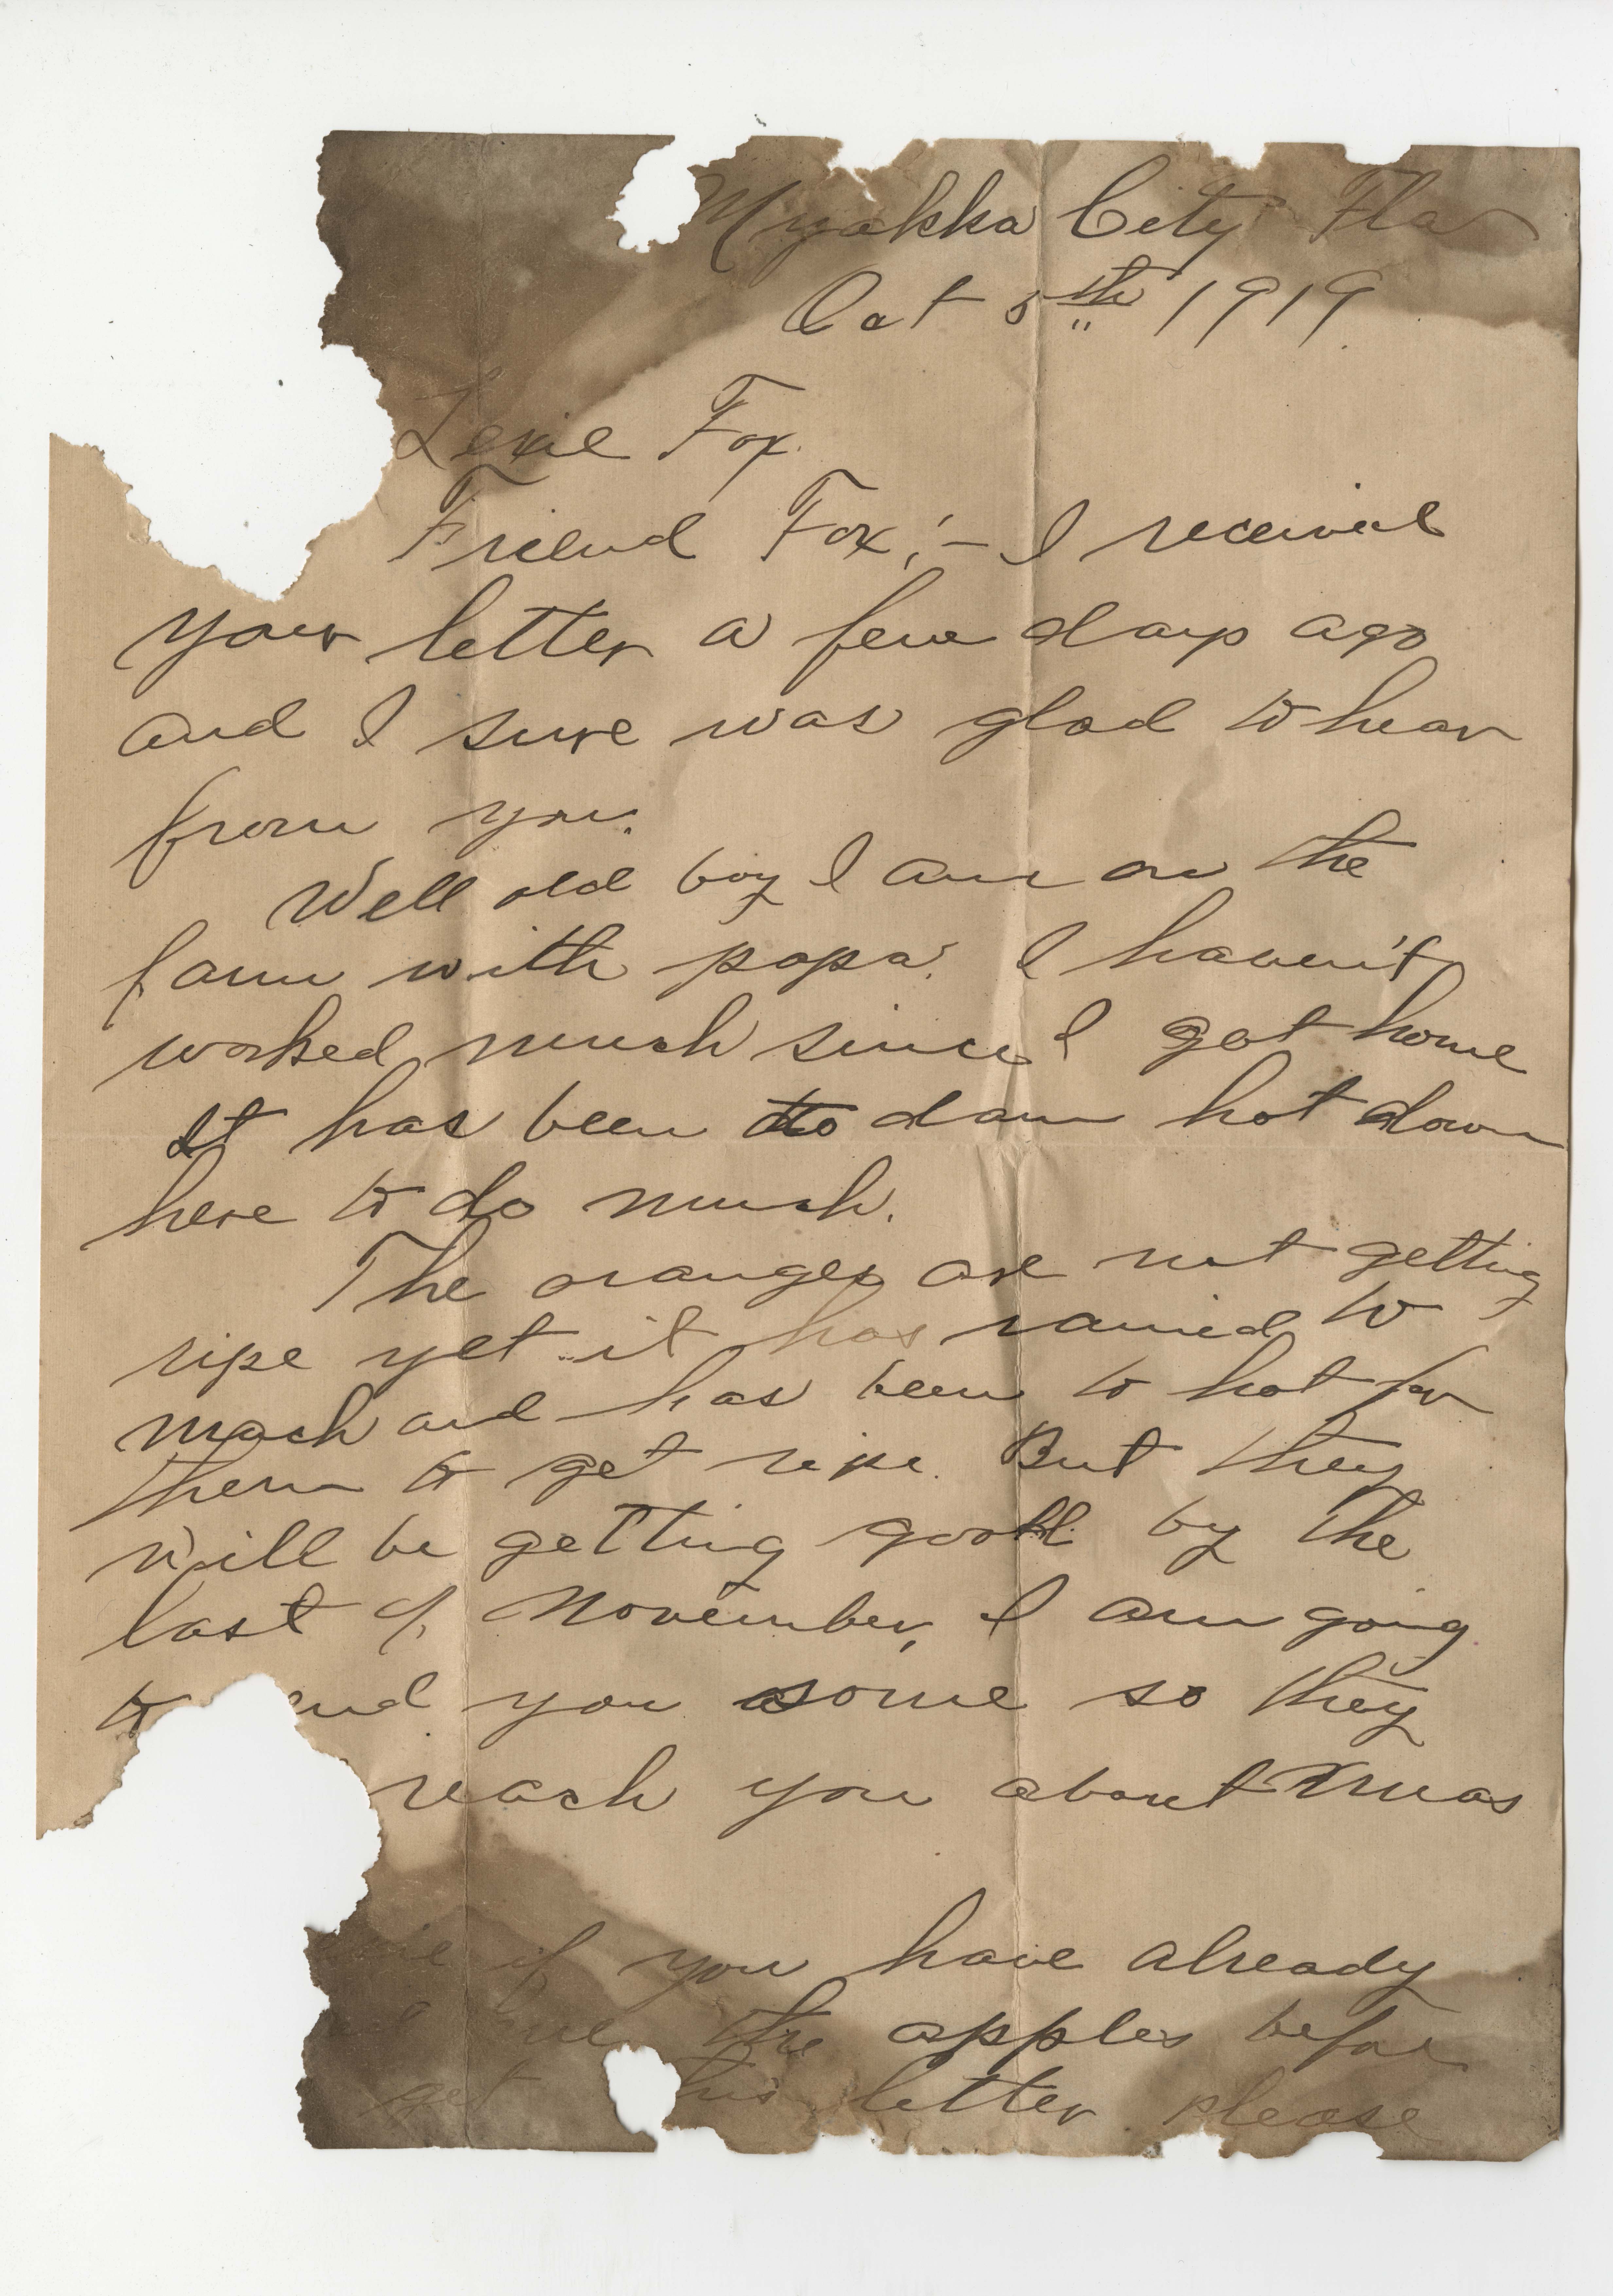 Myakka City Fla
Oct 5th 1919.
Lexie Fox.
Friend Fox;- I received
your letter a few days ago
and I sure was glad to hear
from you.
Well old boy I am on the
farm with papa. I haven't
worked much since I got home
It has been to dam hot down
here to do much.
The oranges are not getting
ripe yet it has rained to
much and has been to hot for
them to get ripe. But they
will be getting good by the
last of November, I am going
to end you some so they
reach you about Xmas
if you have already
the apples before
get his letter please